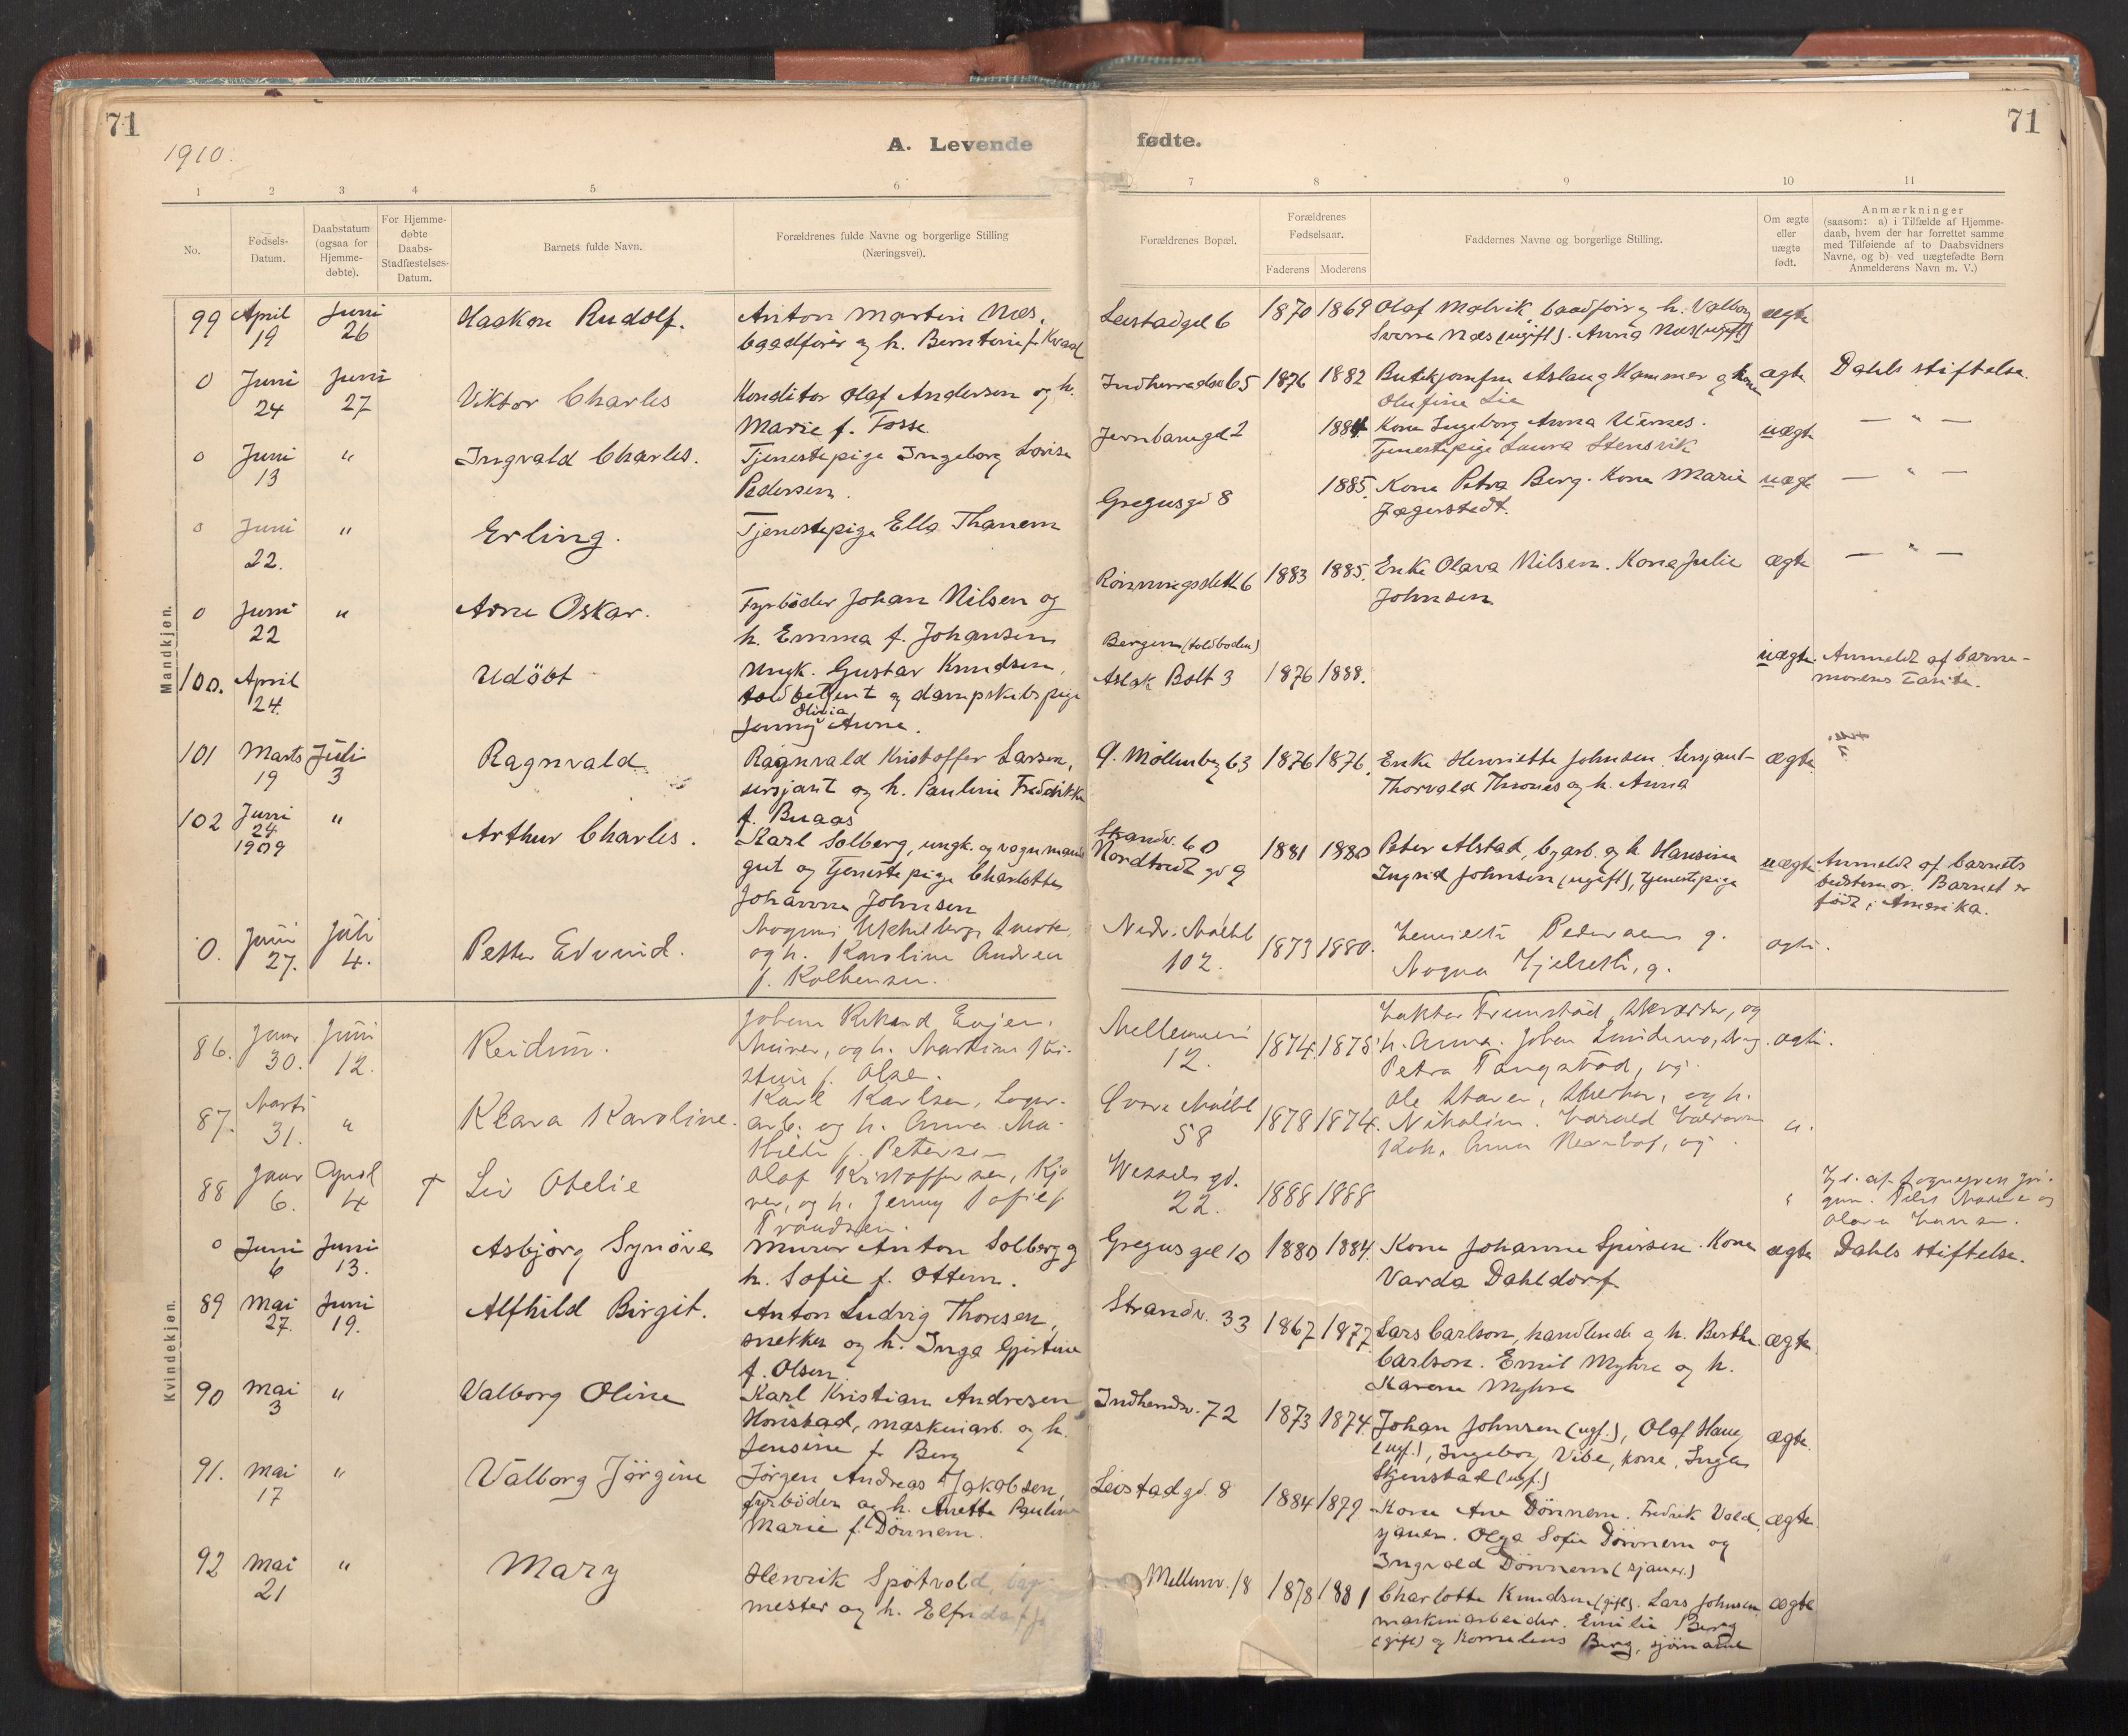 71
1910.
A. Levende
fødte.
71
1 2 3 4 5 6 7 8 9 10 11
No.
Fødsels-
Datum.
Daabstatum
(ogsaa for
Hjemme-
døbte).
For Hjemme-
døbte
Daabs-
Stadfæstelses-
Datum.
Barnets fulde Navn.
Forældrenes fulde Navne og borgerlige Stilling
(Næringsvei).
Forældrenes Bopæl.
Forældrenes
Fødselsaar.
Faderens Moderens
Faddernes Navne og borgerlige Stilling.
Om ægte
eller
uægte
født.
Anmærkninger
(saasom: a) i Tilfælde af Hjemme-
daab, hvem der har forrettet samme
med Tilføiende af to Daabsvidners
Navne, og b) ved uægtefødte Børn
Anmelderens Navn m. V.)
Mandkjøn.
99 April 19 Juni 26 Haakon Rudolf.
Anton Martin Næs,
baadfører og h. Berntine f. Kvaal
Leistadgd 6 1870 1869
Olaf Malvik, baadfører og h. Valborg
Sverre Næs (ugift). Anna Næs (ugift)
ægte
0 Juni 24 Juni 27 Viktor Charles
Konditor Olaf Andersen og h.
Marie f. Fosse
Indherredsv 65 1876 1882
Butikjomfru Aslaug Hammer og kone
Olufine Lie
ægte Dahls stiftelse.
0 Juni 13 " Ingvald Charles.
Tjenestepige Ingeborg Lovise
Pedersen.
Jernbanegd 2 1884
Kone Ingeborg Anna Uernes.
Tjenestepige Laura Stensvik
uægte — " —
0 Juni 22. " Erling.
Tjenestepige Ella Thanem
Gregusgd 8 1885.
Kone Petra Berg. Kone Marie
Jægerstedt.
uægte — " —
0 Juni 22 " Arne Oskar.
Fyrbøder Johan Nilsen og
h. Emma f. Johansen
Rönningsslett 6 1883 1885.
Enke Olava Nilsen. Kone Julie
Johnsen
ægte — " —
100. April 24. Udöbt
Ungk. Gustav Knudsen,
toldbetjent og dampskibspige
Jenny Olivia Anne.
Bergen (toldboden)
Aslak Bolt 3 1876 1888.
uægte. Anmeldt af barne-
morens tante.
101 Marts 19 Juli 3 Ragnvald
Ragnvald Kristoffer Larsen,
sersjant og h. Pauline Fredrikke
f. Buaas
Ø. Møllenbg 63 1876 1876.
Enke Henriette Johnsen. Sersjant
Thorvald Thrones og h. Anna
ægte
102 Juni 24 1909 " Arthur Charles.
Karl Solberg, ungk. og vognmands
gut og tjenestepige Charlotte
Johanna Johnsen
Strandv. 60
Nordtvedt gd 9 1881 1880
Peter Alstad, byarb. og h. Hansine
Ingrid Johnsen (ugift), tjenestepige
uægte Anmeldt af barnets
bedstemor. Barnet er
født i Amerika.
0. Juni 27. Juli 4. Petter Edvind.
og h. Karoline Andrea
f. Kolbensen.
Nedr. Møllbl
102. 1873 1880.
Pedersen g.
ægte.
Kvindekjøn.
86. Janr 30. Juni 12. Reidun.
Johan Rikard Evjen,
Murer, og h. Martine Kri-
stine f. Olsen.
Mellemveien
12. 1874 1875
Petra Tangstad, ug.
ægte.
87. Marts 31. " Klara Karoline.
Karl Karlsen, Lager-
arb. og h. Anna Ma-
thilde f. Petersen
Øvre Møllbl
58 1878 1874.
Nikoline. Harald Halvorsen
".
88 Janr 6. April 4 † Liv Otelie
Olaf Kristoffersen, Kjø-
rer, og h. Jenny Sofie f.
Trondsen.
Wessels gd.
22. 1888 1888
"
0 Juni 6 Juni 13. Asbjørg Synöve
Murer Anton Solberg og
h. Sofie f. Ottem.
Gregus gd 10 1880 1884.
Kone Johanna Spersen. Kone
Varda Dahldorf
ægte Dahls stiftelse.
89 Mai 27. Juni 19. Alfhild Birgit.
Anton Ludvig Thoresen,
snekker og h. Inga Gjertine
f. Olsen
Strandv. 33 1867 1877
Lars Carlson, handlende og h. Berthe
Carlson. Emil Myhre og h.
Karen Myhre
ægte
90 Mai 3 " Valborg Oline
Karl Kristian Andresen
Honstad, maskinarb. og h.
Jensine f. Berg
Indherredsv. 72 1873 1874.
Johan Johnsen (ugf.), Olaf Haug
(ugf.), Ingeborg Vibe, kone, Inga
Stjenstad (ugf.)
ægte
91. Mai 17 " Valborg Jørgine
Jørgen Andreas Jakobsen,
fyrbøder og h. Anette Pauline
Marie f. Dönnem.
Leistadgd. 8 1884 1879
Kone Ane Dönnem. Fredrik Vold
sjauer. Olga Sofie Dönnem og
Ingvald Dönnem (sjauer.)
ægte
92 Mai 21 " Mary
Henrik Spøtvold,
mester og h. Elfrida f.
Mellemv. 18 1878 1881
Charlotte Knudsen (gift). Lars Johnsen
maskinarbeider. Emilie Berg
(gift) og Kornelius Berg, sjömand
ægte